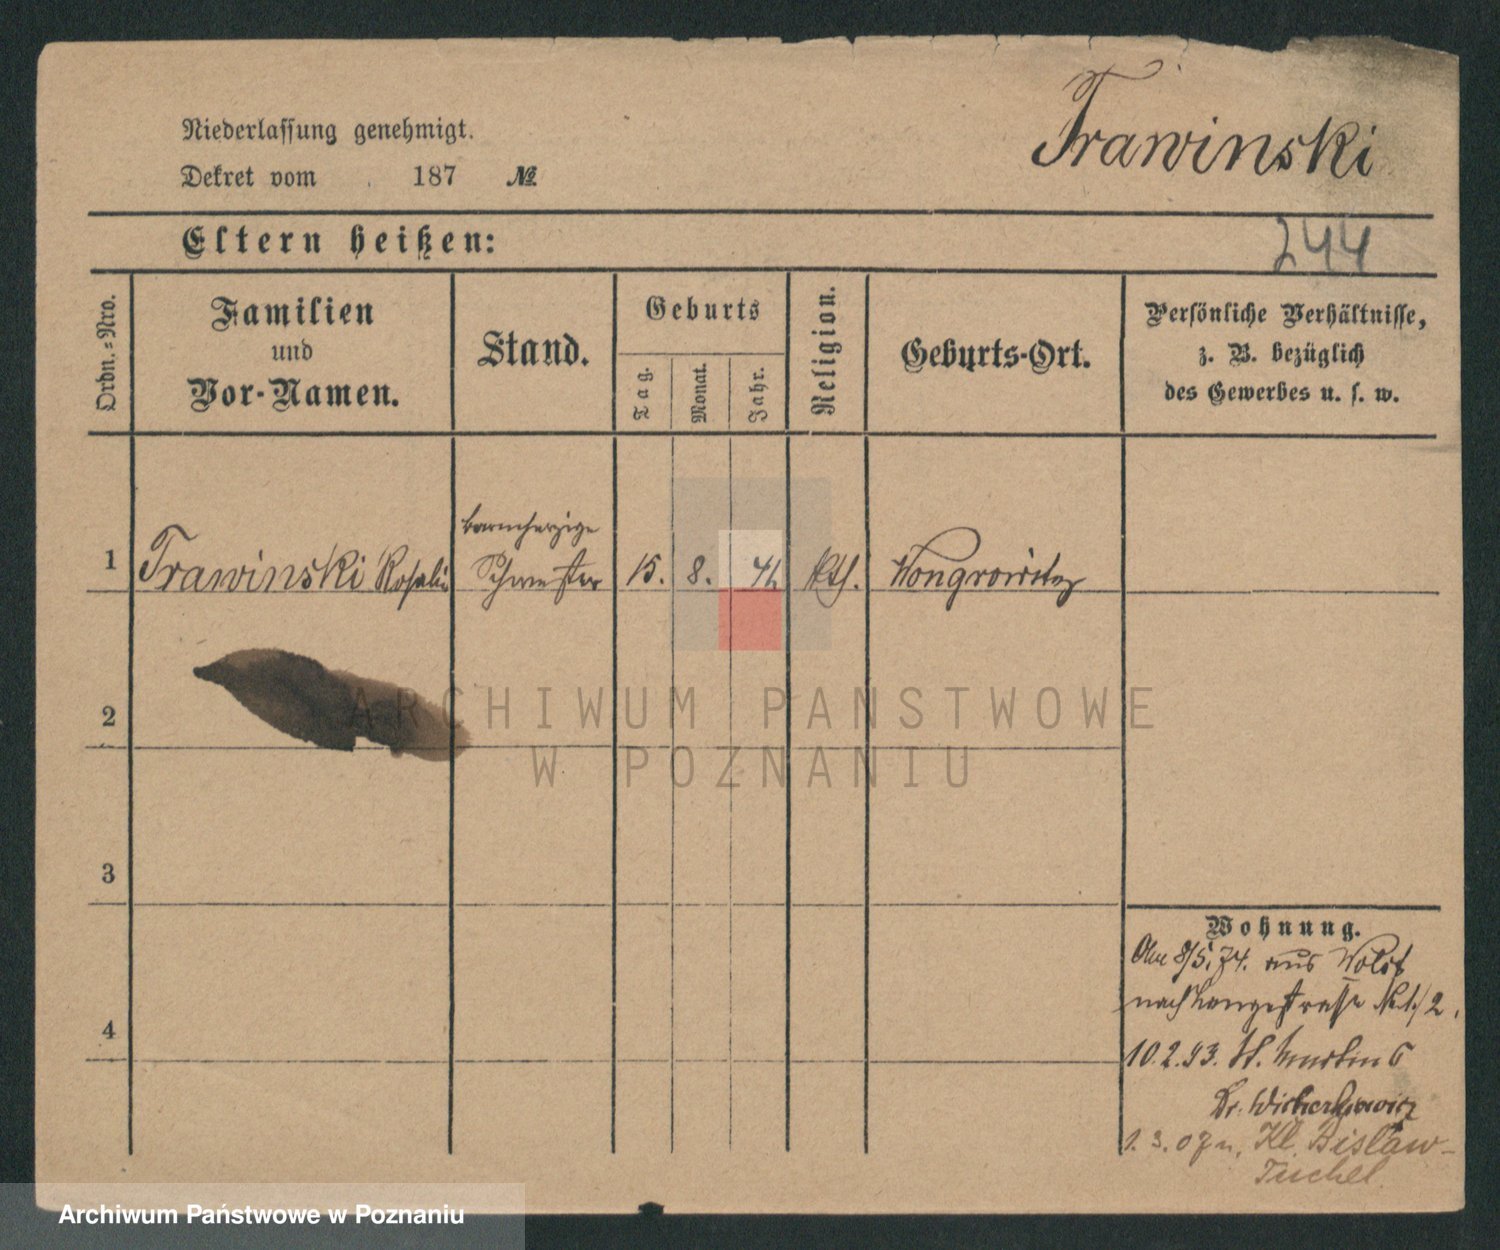 Trawinski
Niederlassung genehmigt.
Dekret vom 187 №
Eltern heißen:
244
Ordn.-Nro.
Familien
und
Vor-Namen.
Stand.
Geburts
Tag.
Monat.
Jahr.
Religion.
Geburts-Ort.
Persönliche Verhältnisse,
z. B. bezüglich
des Gewerbes u. s. w.
barmherzige
1 Trawinski Rosalie Schwester 15. 8. kth. Wongrowitz
2
ARCHIWUM PAŃSTWOWE
W POZNANIU
3
4
Wohnung.
Am 8/5. 74. aus
nach Langestrasse No. 1/2.
10.2.93. St. Martin 6
Dr. Wicherkiewicz
1. 3. 07 n. Kl. Bislaw-
Tuchel.
Archiwum Państwowe w Poznaniu